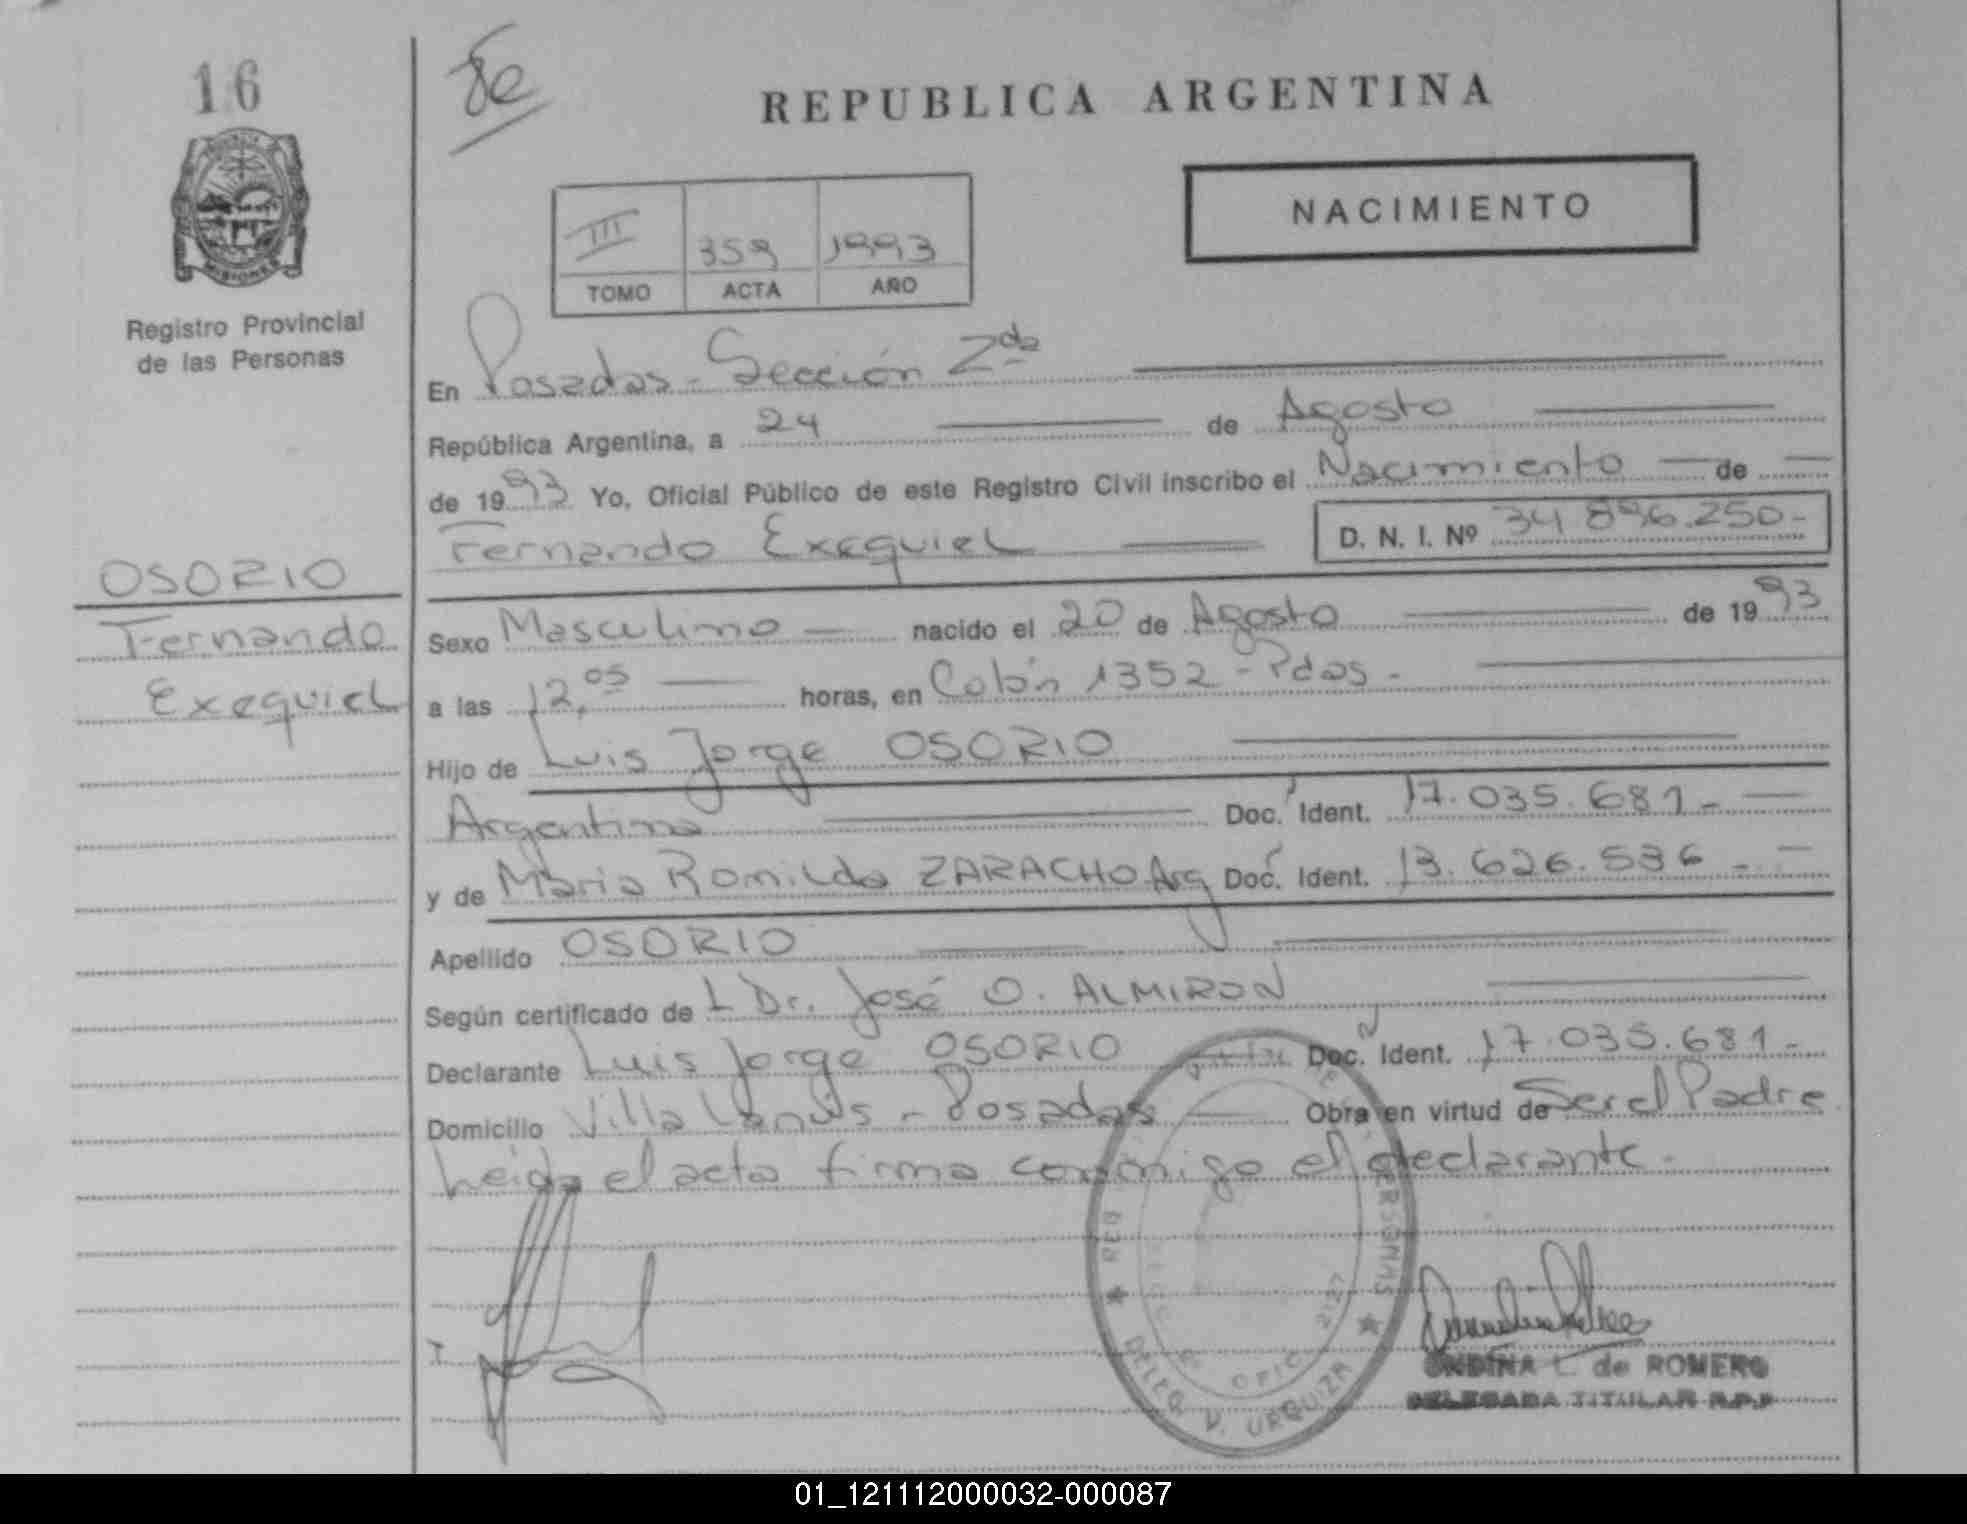 16
8e
REPUBLICA ARGENTINA
MISIONES
Registro Provincial
de las Personas
NACIMIENTO
III 359 1993
TOMO ACTA AÑO
En Posadas - Sección 2da
República Argentina, a 24 de Agosto
de 1993 Yo, Oficial Público de este Registro Civil inscribo el Nacimiento de
Fernando Exequiel D. N. I. Nº 34 896.250-
OSORIO
Fernando
Exequiel
Sexo Masculino nacido el 20 de Agosto de 1993
a las 12,05 horas, en Colón 1352 - Pdas -
Hijo de Luis Jorge OSORIO
Argentino Doc. Ident. 17.035.681-
y de Maria Romilda ZARACHO Arg Doc. Ident. 13.626.536 -
Apellido OSORIO
Según certificado de L Dr. José O. ALMIRON
Declarante Luis Jorge OSORIO Doc. Ident. 17.035.681-
Domicilio Villa Lanús - Posadas Obra en virtud de Ser el Padre
Leída el acta firma conmigo el declarante -
PERSONAS
OFIC 2127
DELEG V. URQUIZA
ONDINA L. de ROMERO
DELEGADA TITULAR R.P.P
01_121112000032-000087